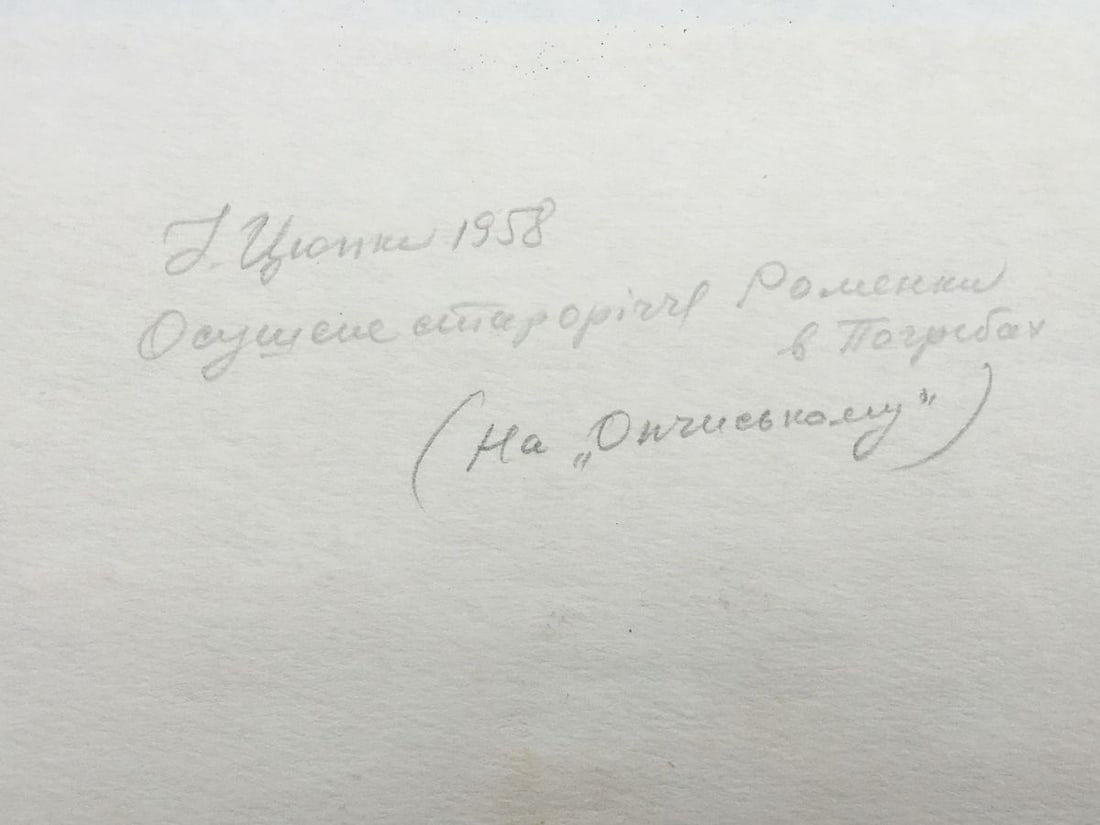 І. Цюпка 1958
Осушене старорічче Роменки
в Погребах
(На „Ончиському")